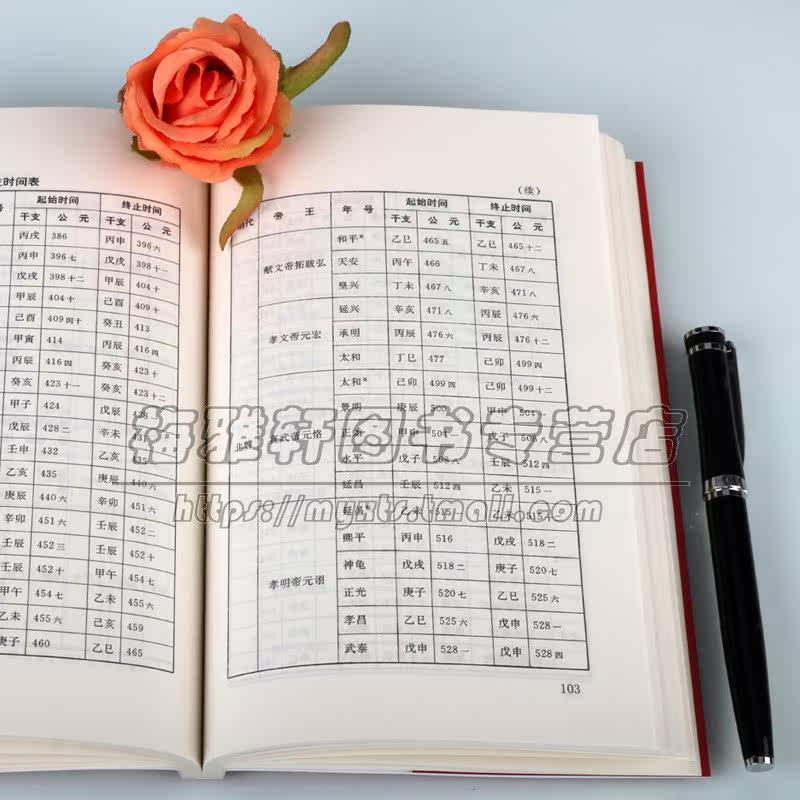 时间表
起始时间 终止时间
号 干支 公 元 干支 公 元
丙戌 386 丙申 396六
丙申 396七 戊戌 398十一
戊戌 398十二 甲辰 404十
甲辰 404十 己酉 409十
己酉 409闰十 癸丑 413
甲寅 414 丙辰 416四
丙辰 416四 癸亥 423十
癸亥 423十一 癸亥 423十二
甲子 424 戊辰 428
戊辰 428二 辛未 431
壬申 432 乙亥 435
乙亥 435 庚辰 440六
庚辰 440六 辛卯 451六
辛卯 451六 壬辰 452二
壬辰 452三 壬辰 452十
壬辰 452十 甲午 454七
甲午 454七 乙未 455六
乙未 455六 己亥 459
庚子 460 乙巳 465
(续)
朝代 帝 王 年 号 起始时间 终止时间
干支 公 元 干支 公 元
北魏
献文帝拓跋弘
和平* 乙巳 465五 乙巳 465十二
天安 丙午 466 丁未 467八
皇兴 丁未 467八 辛亥 471八
孝文帝元宏
延兴 辛亥 471八 丙辰 476六
承明 丙辰 476六 丙辰 476十二
太和 丁巳 477 己卯 499四
宣武帝元恪
太和* 己卯 499四 己卯 499十二
景明 庚辰 500 甲申 504一
正始 甲申 504一 戊子 508八
永平 戊子 508八 壬辰 512四
延昌 壬辰 512四 乙未 515一
孝明帝元诩
延昌* 乙未 515一 乙未 515十
熙平 丙申 516 戊戌 518二
神龟 戊戌 518二 庚子 520七
正光 庚子 520七 乙巳 525六
孝昌 乙巳 525六 戊申 528一
武泰 戊申 528一 戊申 528四
103
梅雅轩图书专营店
https://myxts.tmall.com/